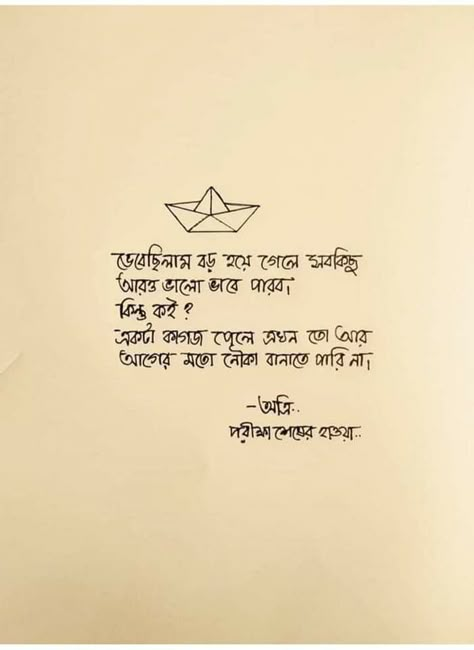 ভেবেছিলাম বড় হয়ে গেলে সবকিছু
আরও ভালো ভাবে পারব।
কিন্তু কই ?
একটা কাগজ পেলে এখন তো আর
আগের মতো নৌকা বানাতে পারি না।
-অত্রি..
পরীক্ষা শেষের হাওয়া..